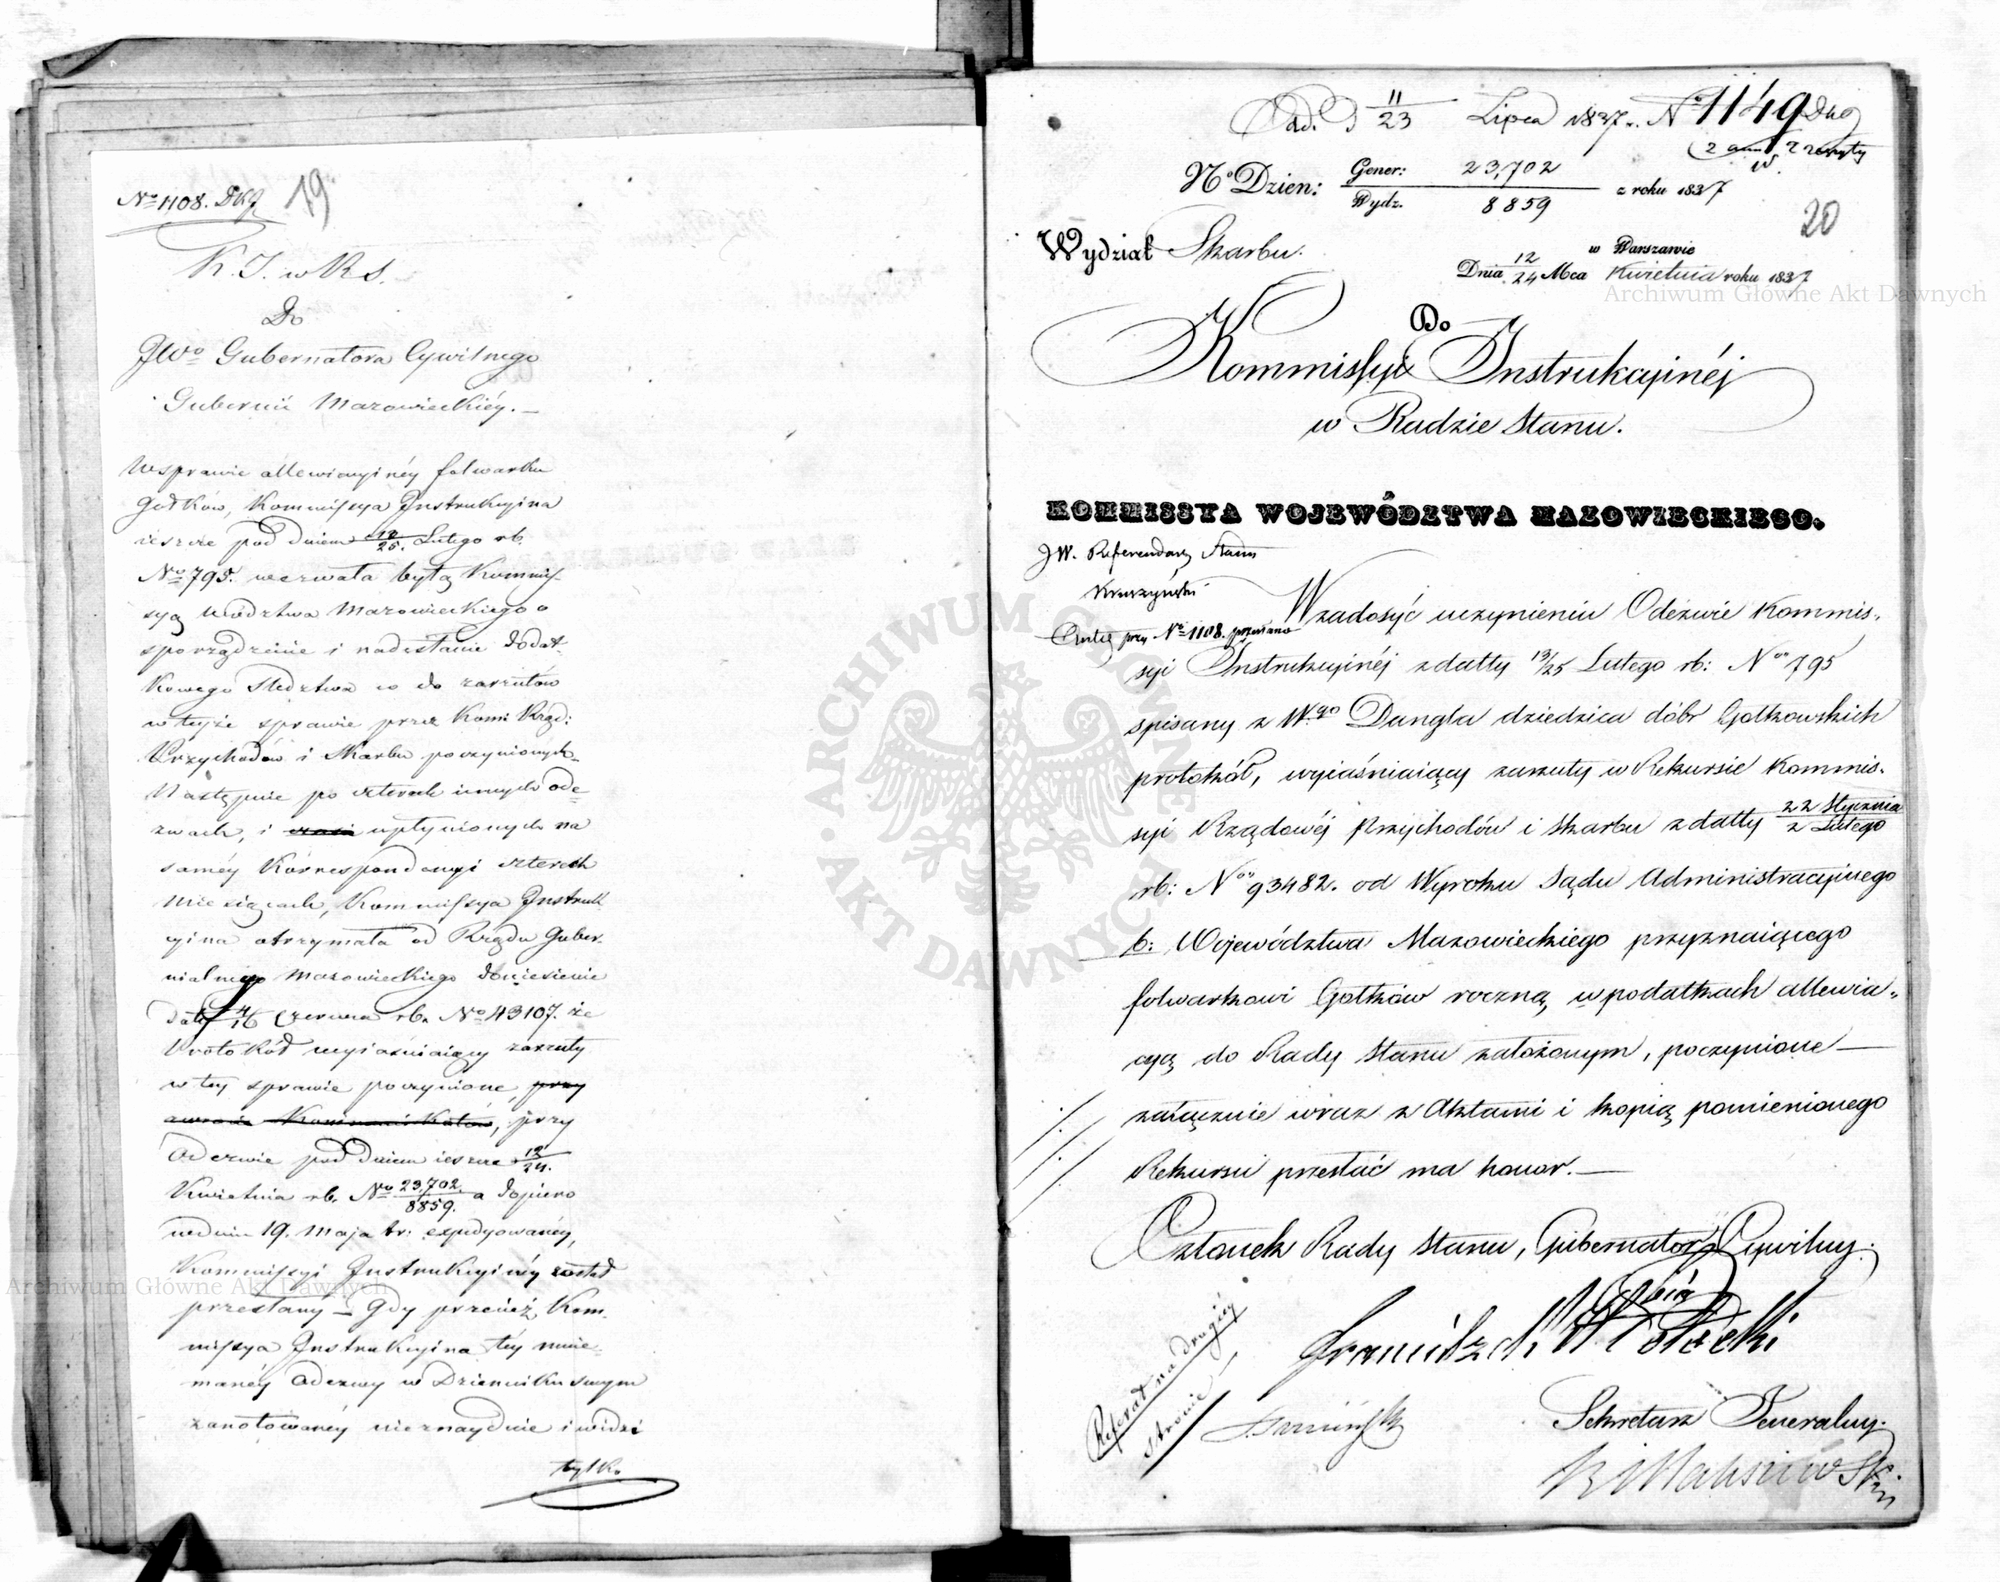 No 1108. DKJ
19
K. I. w R. S.
Do
JWo Gubernatora Cywilnego
Gubernii Mazowieckiéy. —
W sprawie allewiacyinéy folwarku
Gołków, Kommissya Instrukcyina
ieszcze pod dniem 13/25. Lutego rb.
No 795. wezwała byłą Kommis-
syą Wództwa Mazowieckiego o
sporządzenie i nadesłanie dodat-
kowego śledztwa co do zarzutów
w teyże sprawie przez Kom: Rząd:
Przychodów i Skarbu poczynionych.
Następnie po czterech innych ode-
zwach, i upłynionych na
saméy korrespondencyi czterech
miesiącach, Kommissya Instruk-
cyina otrzymała od Rządu Guber-
nialnego Mazowieckiego doniesienie
daty 4/16 Czerwca rb. No 43107. że
Protokół wyiaśniaiący zarzuty
w tey sprawie poczynione, przy
, przy
Odezwie pod dniem ieszcze 12/24.
Kwietnia rb. No 23,702./8859. a dopiero
w dniu 19. Maja t.r. expedyowanéy,
Kommissyi Instrukcyinéy został
przesłany — Gdy przecież Kom-
missya Instrukcyina téy mnie-
manéy odezwy w Dzienniku swym
zanotowanéy nieznayduie i widzi
tylko
ad. D 11/23 Lipca 1837 r. No 1149 DKJ
N.o Dzien: Gener: 23,702 / Wydz. 8859 z roku 1837
20
Wydział Skarbu.
w Warszawie
Dnia 12/24 Mca Kwietnia roku 1837
Do
Kommissyi Instrukcyinéj
w Radzie Stanu.
KOMMISSYA WOJEWÓDZTWA MAZOWIECKIEGO.
JW. Referendarz Stanu
Kruszyński
przy No 1108. przesłano
W zadosyć uczynieniu Odezwie Kommis-
syi Instrukcyinéj z datty 13/25 Lutego rb: No 795
spisany z Wgo Dangla dziedzica dóbr Gołkowskich
protokół, wyiaśniaiący zarzuty w Rekursie Kommis-
syi Rządowéj Przychodów i Skarbu z datty 22 Stycznia / 2 Lutego
rb: No 93482. od Wyroku Sądu Administracyjnego
b: Województwa Mazowieckiego przyznaiącego
folwarkowi Gołków roczną w podatkach allewia-
cyą do Rady Stanu założonym, poczynione —
załącznie wraz z Aktami i kopią pomienionego
Rekursu przesłać ma honor. —
Członek Rady Stanu, Gubernator Cywilny.
Referat na drugiéy
stronie
Sekretarz Generalny.
Archiwum Główne Akt Dawnych
Archiwum Główne Akt Dawnych
ARCHIWUM GŁÓWNE AKT DAWNYCH